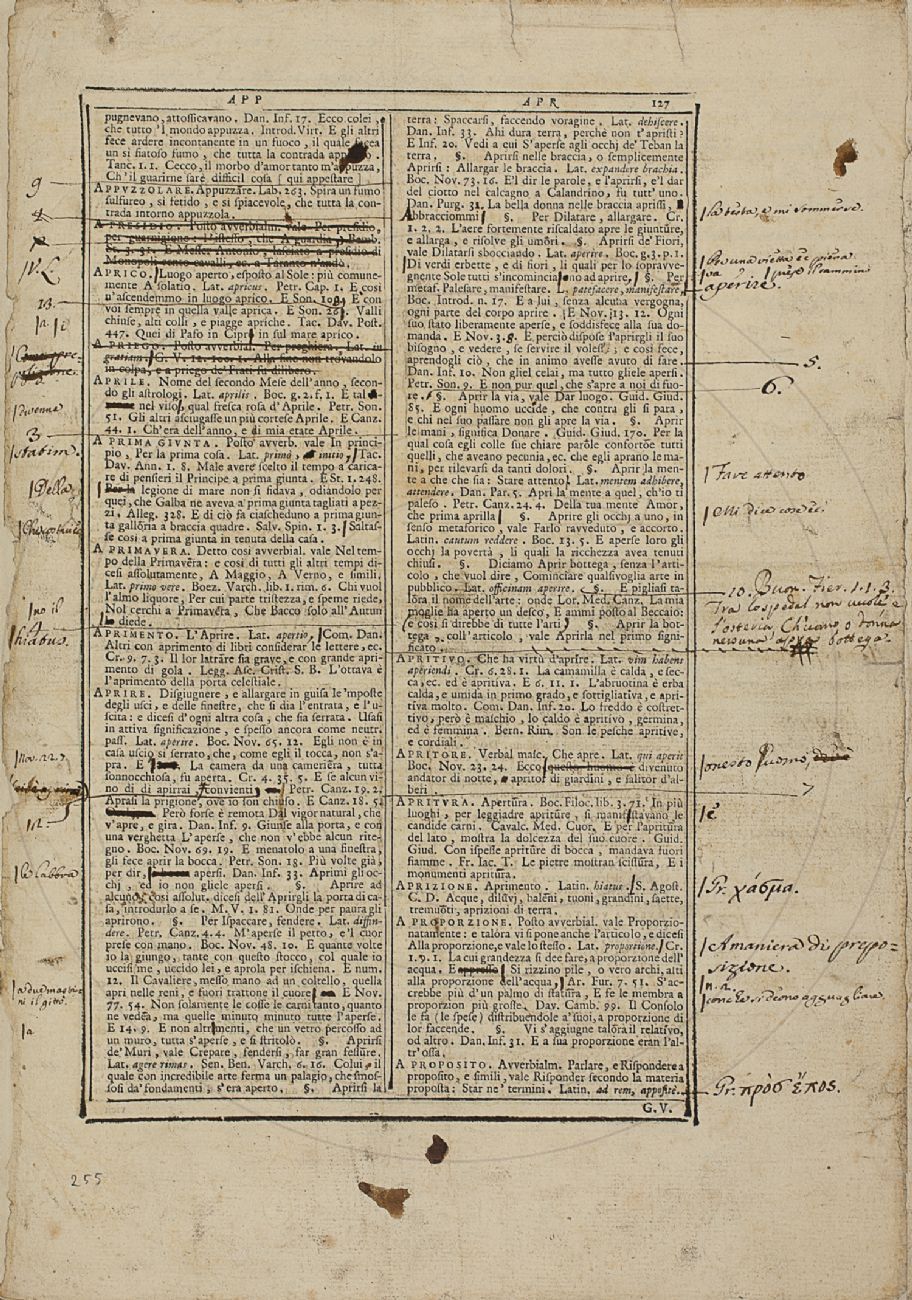 APP
APR 127
pugnevano, attossicavano. Dan. Inf. 17. Ecco colei,
che tutto 'l mondo appuzza. Introd. Virt. E gli altri
fece ardere incontanente in un fuoco, il quale facea
un sì fiatoso fumo, che tutta la contrada
Tanc. 1. 1. Cecco, il morbo d'amor tanto m'appuzza,
Ch'il guarirne sarà difficil cosa [ qui appestare ]
APPUZZOLARE. Appuzzare. Lab. 263. Spira un fumo
sulfureo, sì fetido, e sì spiacevole, che tutta la con-
trada intorno appuzzola.
A PRESIDIO. Posto avverbialm. vale Per presidio,
per guarnigione: l'istesso, che A guardia. Bemb.
St. 3. 31. E Messer Antonio, lasciato a presidio di
Monopoli cento cavalli, ec. a Taranto n'andò.
APRICO. Luogo aperto, esposto al Sole: più comune-
mente A solatìo. Lat. apricus. Petr. Cap. 1. E così
n'ascendemmo in luogo aprico. E Son. 108. E con
voi sempre in quella valle aprica. E Son. 26. Valli
chiuse, alti colli, e piagge apriche. Tac. Dav. Post.
447. Quei di Pafo in Cipri in sul mare aprico.
A PRIEGO. Posto avverbial. Per preghiera. Lat. in
gratiam. G. V. 12. 100. 1. Alla fine non trovandolo
in colpa, e a priego de' Frati fu dilibero.
APRILE. Nome del secondo Mese dell'anno, secon-
do gli astrologi. Lat. aprilis. Boc. g. 2. f. 1. E tal
nel viso, qual fresca rosa d'Aprile. Petr. Son.
51. Gli altri asciugasse un più cortese Aprile. E Canz.
44. 1. Ch'era dell'anno, e di mia etate Aprile.
A PRIMA GIUNTA. Posto avverb. vale In princi-
pio, Per la prima cosa. Lat. primò, initio, Tac.
Dav. Ann. 1. 8. Male avere scelto il tempo a carica-
re di pensieri il Principe a prima giunta. E St. 1. 248.
Per la legione di mare non si fidava, odiandolo per
quei, che Galba ne aveva a prima giunta tagliati a pez-
zi, Alleg. 328. E di ciò fa ciascheduno a prima giun-
ta gallòria a braccia quadre. Salv. Spin. 1. 3. Saltas-
se così a prima giunta in tenuta della casa.
A PRIMAVERA. Detto così avverbial. vale Nel tem-
po della Primavèra: e così di tutti gli altri tempi di-
cesi assolutamente, A Maggio, A Verno, e simili.
Lat. primo vere. Boez. Varch. lib. 1. rim. 6. Chi vuol
l'almo liquore, Per cui parte tristezza, e speme riede,
Nol cerchi a Primavèra, Che Bacco solo all'Autun-
no diede.
APRIMENTO. L'Aprire. Lat. apertio, Com. Dan.
Altri con aprimento di libri considerar le lettere, ec.
Cr. 9. 7. 3. Il lor latràre sia grave, e con grande apri-
mento di gola. Legg. Asc. Crist. S. B. L'ottava è
l'aprimento della porta celestiale.
APRIRE. Disgiugnere, e allargare in guisa le 'mposte
degli usci, e delle finestre, che si dia l'entrata, e l'u-
scita: e dicesi d'ogni altra cosa, che sia serrata. Usasi
in attiva significazione, e spesso ancora come neutr.
pass. Lat. aperire. Boc. Nov. 65. 12. Egli non è in
casa uscio sì serrato, che, come egli il tocca, non s'a-
pra. E La camera da una camerièra, tutta
sonnocchiosa, fu aperta. Cr. 4. 35. 5. E se alcun vi-
no di dì apriraì convienti Petr. Canz. 19. 2.
Aprasi la prigione, ove io son chiuso. E Canz. 18. 5.
Però forse è remota Dal vigor natural, che
v'apre, e gira. Dan. Inf. 9. Giunse alla porta, e con
una verghetta L'aperse, che non v'ebbe alcun rite-
gno. Boc. Nov. 69. 19. E menatolo a una finestra,
gli fece aprir la bocca. Petr. Son. 13. Più volte già,
per dir, apersi. Dan. Inf. 33. Aprimi gli oc-
chj, ed io non gliele apersi. §. Aprire ad
alcuno così assolut. dicesi dell'Aprirgli la porta di ca-
sa, introdurlo a se. M. V. 1. 81. Onde per paura gli
aprirono. §. Per Ispaccare, fendere. Lat. diffin-
dere. Petr. Canz. 4. 4. M'aperse il petto, e 'l cuor
prese con mano. Boc. Nov. 48. 10. E quante volte
io la giungo, tante con questo stocco, col quale io
uccisi me, uccido lei, e aprola per ischiena. E num.
12. Il Cavaliere, messo mano ad un coltello, quella
aprì nelle reni, e fuori trattone il cuore E Nov.
77. 54. Non solamente le cosse le carni tanto, quanto
ne vedèa, ma quelle minuto minuto tutte l'aperse.
E 14. 9. E non altrimenti, che un vetro percosso ad
un muro, tutta s'aperse, e si stritolò. §. Aprirsi
de' Muri, vale Crepare, fendersi, far gran fessure.
Lat. agere rimas. Sen. Ben. Varch. 6. 16. Colui, il
quale con incredibile arte ferma un palagio, che smos-
sosi da' fondamenti, s'era aperto. §. Aprirsi la
terra: Spaccarsi, faccendo voragine. Lat. dehiscere.
Dan. Inf. 33. Ahi dura terra, perchè non t'apristi?
E Inf. 20. Vedi a cui S'aperse agli occhj de' Teban la
terra. §. Aprirsi nelle braccia, o semplicemente
Aprirsi: Allargare le braccia. Lat. expandere brachia.
Boc. Nov. 73. 16. E 'l dir le parole, e l'aprirsi, e 'l dar
del ciotto nel calcagno a Calandrino, fu tutt'uno.
Dan. Purg. 31. La bella donna nelle braccia aprissi,
Abbracciommi §. Per Dilatare, allargare. Cr.
1. 2. 2. L'aere fortemente riscaldato apre le giuntùre,
e allarga, e risolve gli umòri. §. Aprirsi de' Fiori,
vale Dilatarsi sbocciando. Lat. aperire. Boc. g. 3. p. 1.
Di verdi erbette, e di fiori, li quali per lo sopravve-
gnente Sole tutti s'incominciano ad aprire, §. Per
metaf. Palesare, manifestare. L. patefacere, manifestare.
Boc. Introd. n. 17. E a lui, senza alcuna vergogna,
ogni parte del corpo aprire. E Nov. 13. 12. Ogni
suo stato liberamente aperse, e soddisfece alla sua do-
manda. E Nov. 3. 8. E perciò dispose d'aprirgli il suo
bisogno, e vedere, se servire il volesse; e così fece,
aprendogli ciò, che in animo avesse avuto di fare.
Dan. Inf. 10. Non gliel celai, ma tutto gliele apersi.
Petr. Son. 9. E non pur quel, che s'apre a noi di fuo-
re. §. Aprir la via, vale Dar luogo. Guid. Giud.
85. E ogni huomo uccide, che contra gli si para,
e chi nel suo passare non gli apre la via. §. Aprir
le mani, significa Donare. Guid. Giud. 170. Per la
qual cosa egli colle sue chiare paròle confortòe tutti
quelli, che aveano pecunia, ec. che egli aprano le ma-
ni, per rilevarsi da tanti dolori. §. Aprir la men-
te a che che sia: Stare attento. Lat. mentem adhibere,
attendere. Dan. Par. 5. Apri la mente a quel, ch'io ti
paleso. Petr. Canz. 24. 4. Della tua mente Amor,
che prima aprilla §. Aprire gli occhj a uno, in
senso metaforico, vale Farlo ravveduto, e accorto.
Latin. cautum reddere. Boc. 13. 5. E aperse loro gli
occhj la povertà, li quali la ricchezza avea tenuti
chiusi. §. Diciamo Aprir bottega, senza l'arti-
colo, che vuol dire, Cominciare qualsivoglia arte in
pubblico. Lat. officinam aperire. §. E pigliasi ta-
lòra il nome dell'arte: onde Lor. Med. Canz. La mia
moglie ha aperto un desco, E ammi posto al Beccaio:
e così si direbbe di tutte l'arti §. Aprir la bot-
tega, coll'articolo, vale Aprirla nel primo signi-
ficato.
APRITIVO. Che ha virtù d'aprire. Lat. vim habens
aperiendi. Cr. 6. 28. 1. La camamilla è calda, e sec-
ca, ec. ed è apritiva. E 6. 11. 1. L'abruotina è erba
calda, e umida in primo grado, e sottigliativa, e apri-
tiva molto. Com. Dan. Inf. 20. Lo freddo è costret-
tivo, però è maschio, lo caldo è apritivo, germina,
ed è femmina. Bern. Rim. Son le pesche apritive,
e cordiali.
APRITORE. Verbal masc. Che apre. Lat. qui aperit
Boc. Nov. 23. 24. Ecco questo huomo è divenuto
andator di notte, apritor di giardini, e salitor d'al-
beri.
APRITURA. Apertùra. Boc. Filoc. lib. 3. 71. In più
luoghi, per leggiadre apritùre, si manifestavano le
candide carni. Cavalc. Med. Cuor. E per l'apritùra
del lato, mostra la dolcezza del suo cuore. Guid.
Giud. Con ispesse apritùre di bocca, mandava fuori
fiamme. Fr. Iac. T. Le pietre mostran scissùra, E i
monumenti apritùra.
APRIZIONE. Aprimento. Latin. hiatus. S. Agost.
C. D. Acque, diluvj, baleni, tuoni, grandini, saette,
tremuòti, aprizioni di terra.
A PROPORZIONE. Posto avverbial. vale Proporzio-
natamente: e talòra vi si pone anche l'articolo, e dicesi
Alla proporzione, e vale lo stesso. Lat. proporcione. Cr.
1. 9. 1. La cui grandezza si dee fare, a proporzione dell'
acqua. E appresso Si rizzino pile, o vero archi, alti
alla proporzione dell'acqua, Ar. Fur. 7. 51. S'ac-
crebbe più d'un palmo di statùra, E fe le membra a
proporzion più grosse. Dav. Camb. 99. Il Consolo
le fa (le spese) distribuendole a' suoi, a proporzione di
lor faccende. §. Vi s'aggiugne talòra il relativo,
od altro. Dan. Inf. 31. E a sua proporzione eran l'al-
tr'ossa.
A PROPOSITO. Avverbialm. Parlare, e Rispondere a
proposito, e simili, vale Risponder secondo la materia
proposta: Star ne' termini. Latin. ad rem, appositè.
G. V.
9
8
V. L.
13.
n. i
3
statim.
Della
no il
hiatus.
4
Nov. 22. 7.
12.
le labbra
a
la testa, e mi sommerse.
aperire.
5.
6.
Fare attento
Mi dice cose ec.
10. Buon. Fier. 1. 1. 3.
Tra lo spedal non vuole e
l'osteria, Ch'uomo o donna
nessuna apra bottega.
onesto huomo,
7
e
Gr. χάσμα.
A maniera di propo-
sizione.
n. 2.
Gr. πρὸς ἔπος.
255